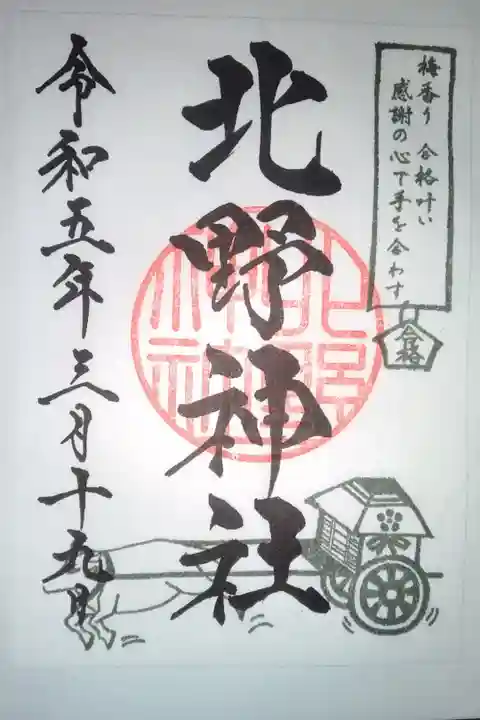 梅香り 合格叶い
感謝の心で手を合わす
合格
北野神社
北野神社
令和五年三月十九日